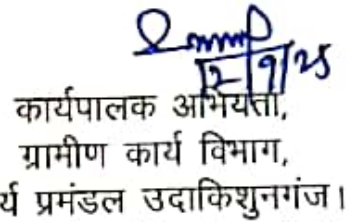 12/9/25
कार्यपालक अभियंता,
ग्रामीण कार्य विभाग,
र्य प्रमंडल उदाकिशुनगंज।